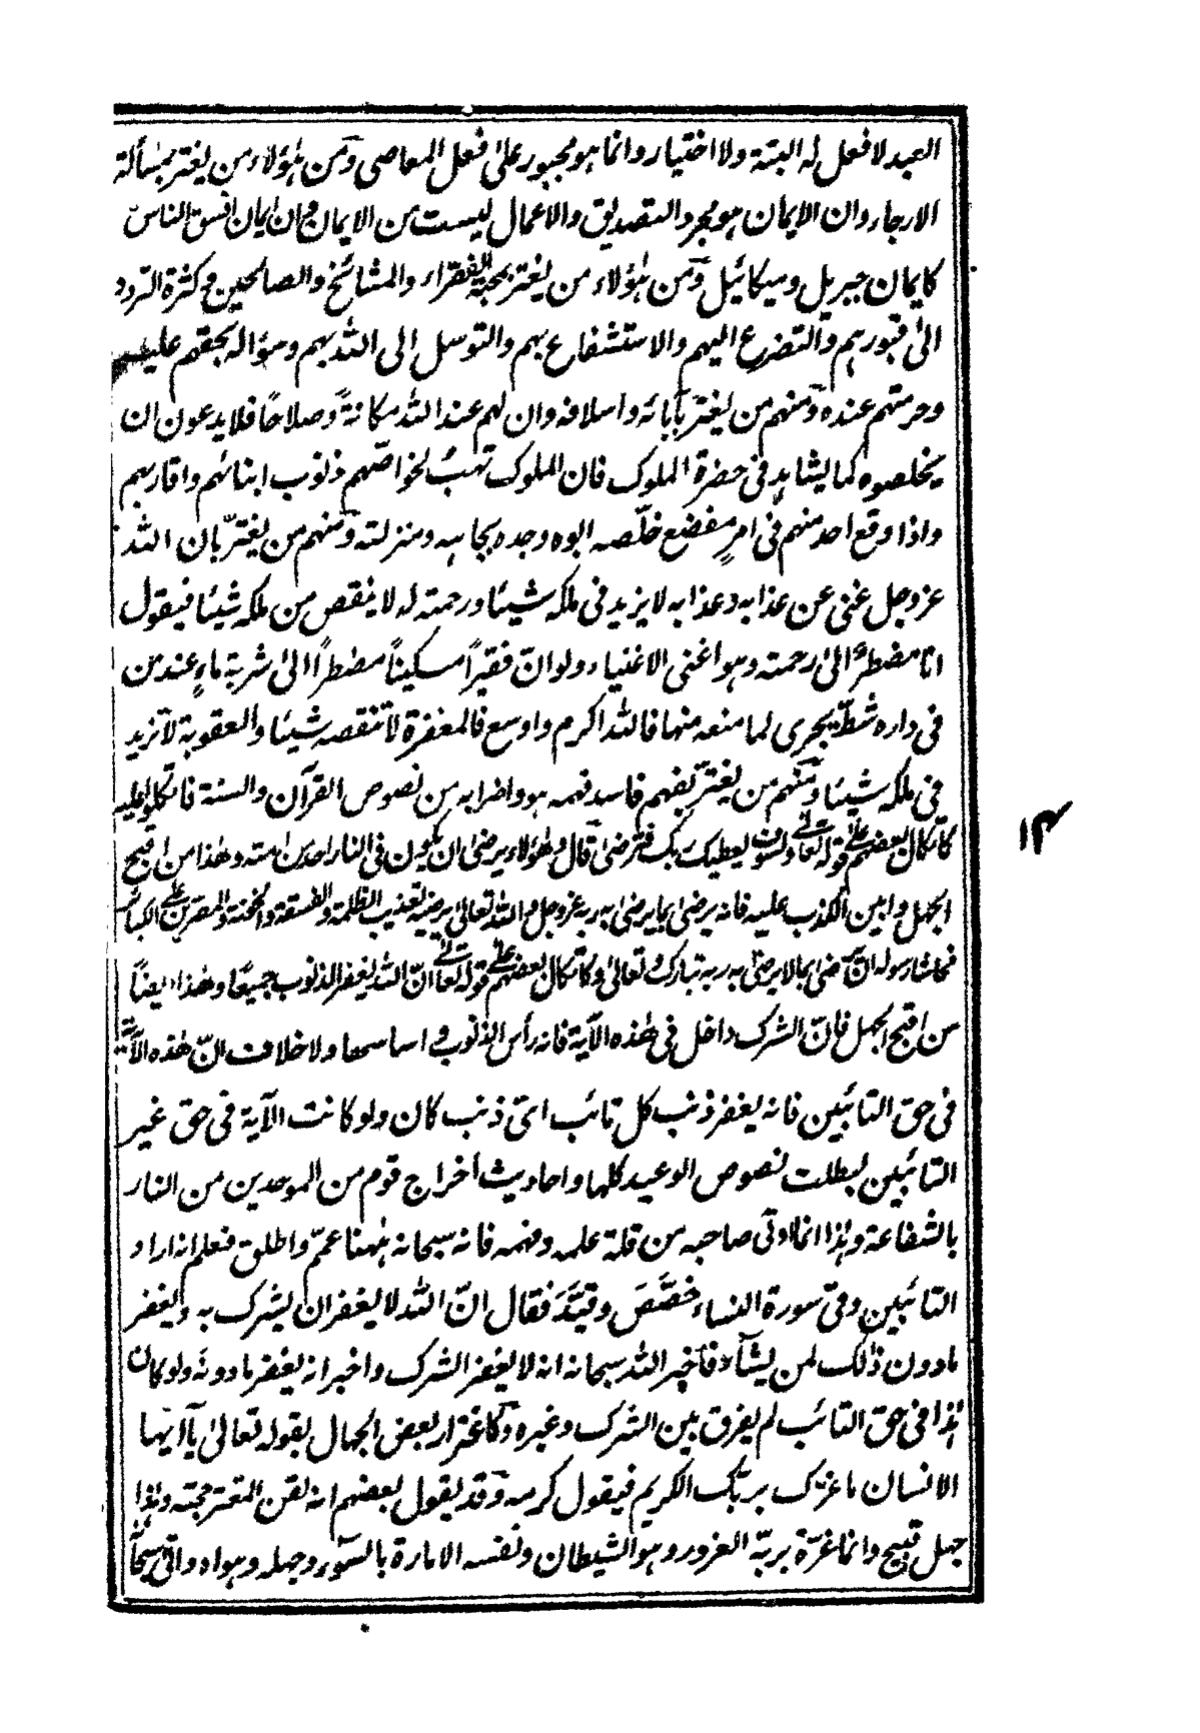 العبد لا فعل له البتة ولا اختيار وانما هو مجبور على فعل المعاصى ومن هؤلاء من يغتر بمسألة
الارجاء وان الايمان هو مجرد التصديق والاعمال ليست من الايمان وان ايمان افسق الناس
كايمان جبريل وميكائيل ومن هؤلاء من يغتر بمحبة الفقراء والمشائخ والصالحين وكثرة التردد
الى قبورهم والتضرع اليهم والاستشفاع بهم والتوسل الى الله بهم وسؤاله بحقهم عليه
وحرمتهم عنده ومنهم من يغتر بآبائه واسلافه وان لهم عند الله مكانةً وصلاحًا فلا يدعون ان
يخلصوه كما يشاهد فى حضرة الملوك فان الملوك تهبُ لخواصّهم ذنوب ابنائهم واقاربهم
واذا وقع احد منهم فى امرٍ مفضع خلّصه ابوه وجده بجاهه ومنزلته ومنهم من يغترّ بان الله
عز وجل غنى عن عذابه وعذابه لا يزيد فى ملكه شيئا ورحمته له لا ينقص من ملكه شيئا فيقول
انا مضطرٌ الى رحمته وهو اغنى الاغنياء ولو انّ فقيرًا مسكينًا مضطرًا الى شربة ماءٍ عند من
فى داره شطّ يجرى لما منعه منها فالله اكرم واوسع فالمغفرة لا تنقصه شيئا والعقوبة لا تزيد
فى ملكه شيئا ومنهم من يغتر بفهم فاسد فهمه هو واضرابه من نصوص القرآن والسنة فاتكلوا عليه
كاتكال بعضهم على قوله تعالى ولسوف يعطيك ربك فترضى قال وهؤلاء يرضى ان يكون فى النار احد من امته وهذا من اقبح
الجهل وابين الكذب عليه فانه يرضى بما يرضى به ربه عز وجل والله تعالى يرضيه تعذيب الظلمة والفسقة والخونة والمصرين على الكبائر
فحاشا رسوله ان يرضى بما لا يرضى به ربه تبارك وتعالى وكاتكال بعضهم على قوله تعالى انّ الله يغفر الذنوب جميعًا وهذا ايضًا
من اقبح الجهل فانّ الشرك داخل فى هذه الآية فانه رأس الذنوب واساسها ولا خلاف انّ هذه الآية
فى حق التائبين فانه يغفر ذنب كل تائب اىّ ذنب كان ولو كانت الآية فى حق غير
التائبين لبطلت نصوص الوعيد كلها واحاديث اخراج قوم من الموحدين من النار
بالشفاعة وهذا انما اوتى صاحبه من قلة علمه وفهمه فانه سبحانه ههنا عمّ واطلق فعلم انه اراد
التائبين وفى سورة النساء خصَّصَ وقيَّدَ فقال انّ الله لا يغفر ان يشرك به ويغفر
مادون ذلك لمن يشآء فاخبر الله سبحانه انه لا يغفر الشرك واخبر انه يغفر ما دونه ولو كان
هذا فى حق التائب لم يفرق بين الشرك وغيره وكاغترار بعض الجهال بقوله تعالى يآ ايها
الانسان ما غرّك بربّك الكريم فيقول كرمه وقد يقول بعضهم انه لقن المغتر حجته وهذا
جهل قبيح وانما غرّه بربّه الغرور وهو الشيطان ونفسه الامارة بالسوء وجهله وهواه واتى سبحانه
۱۴